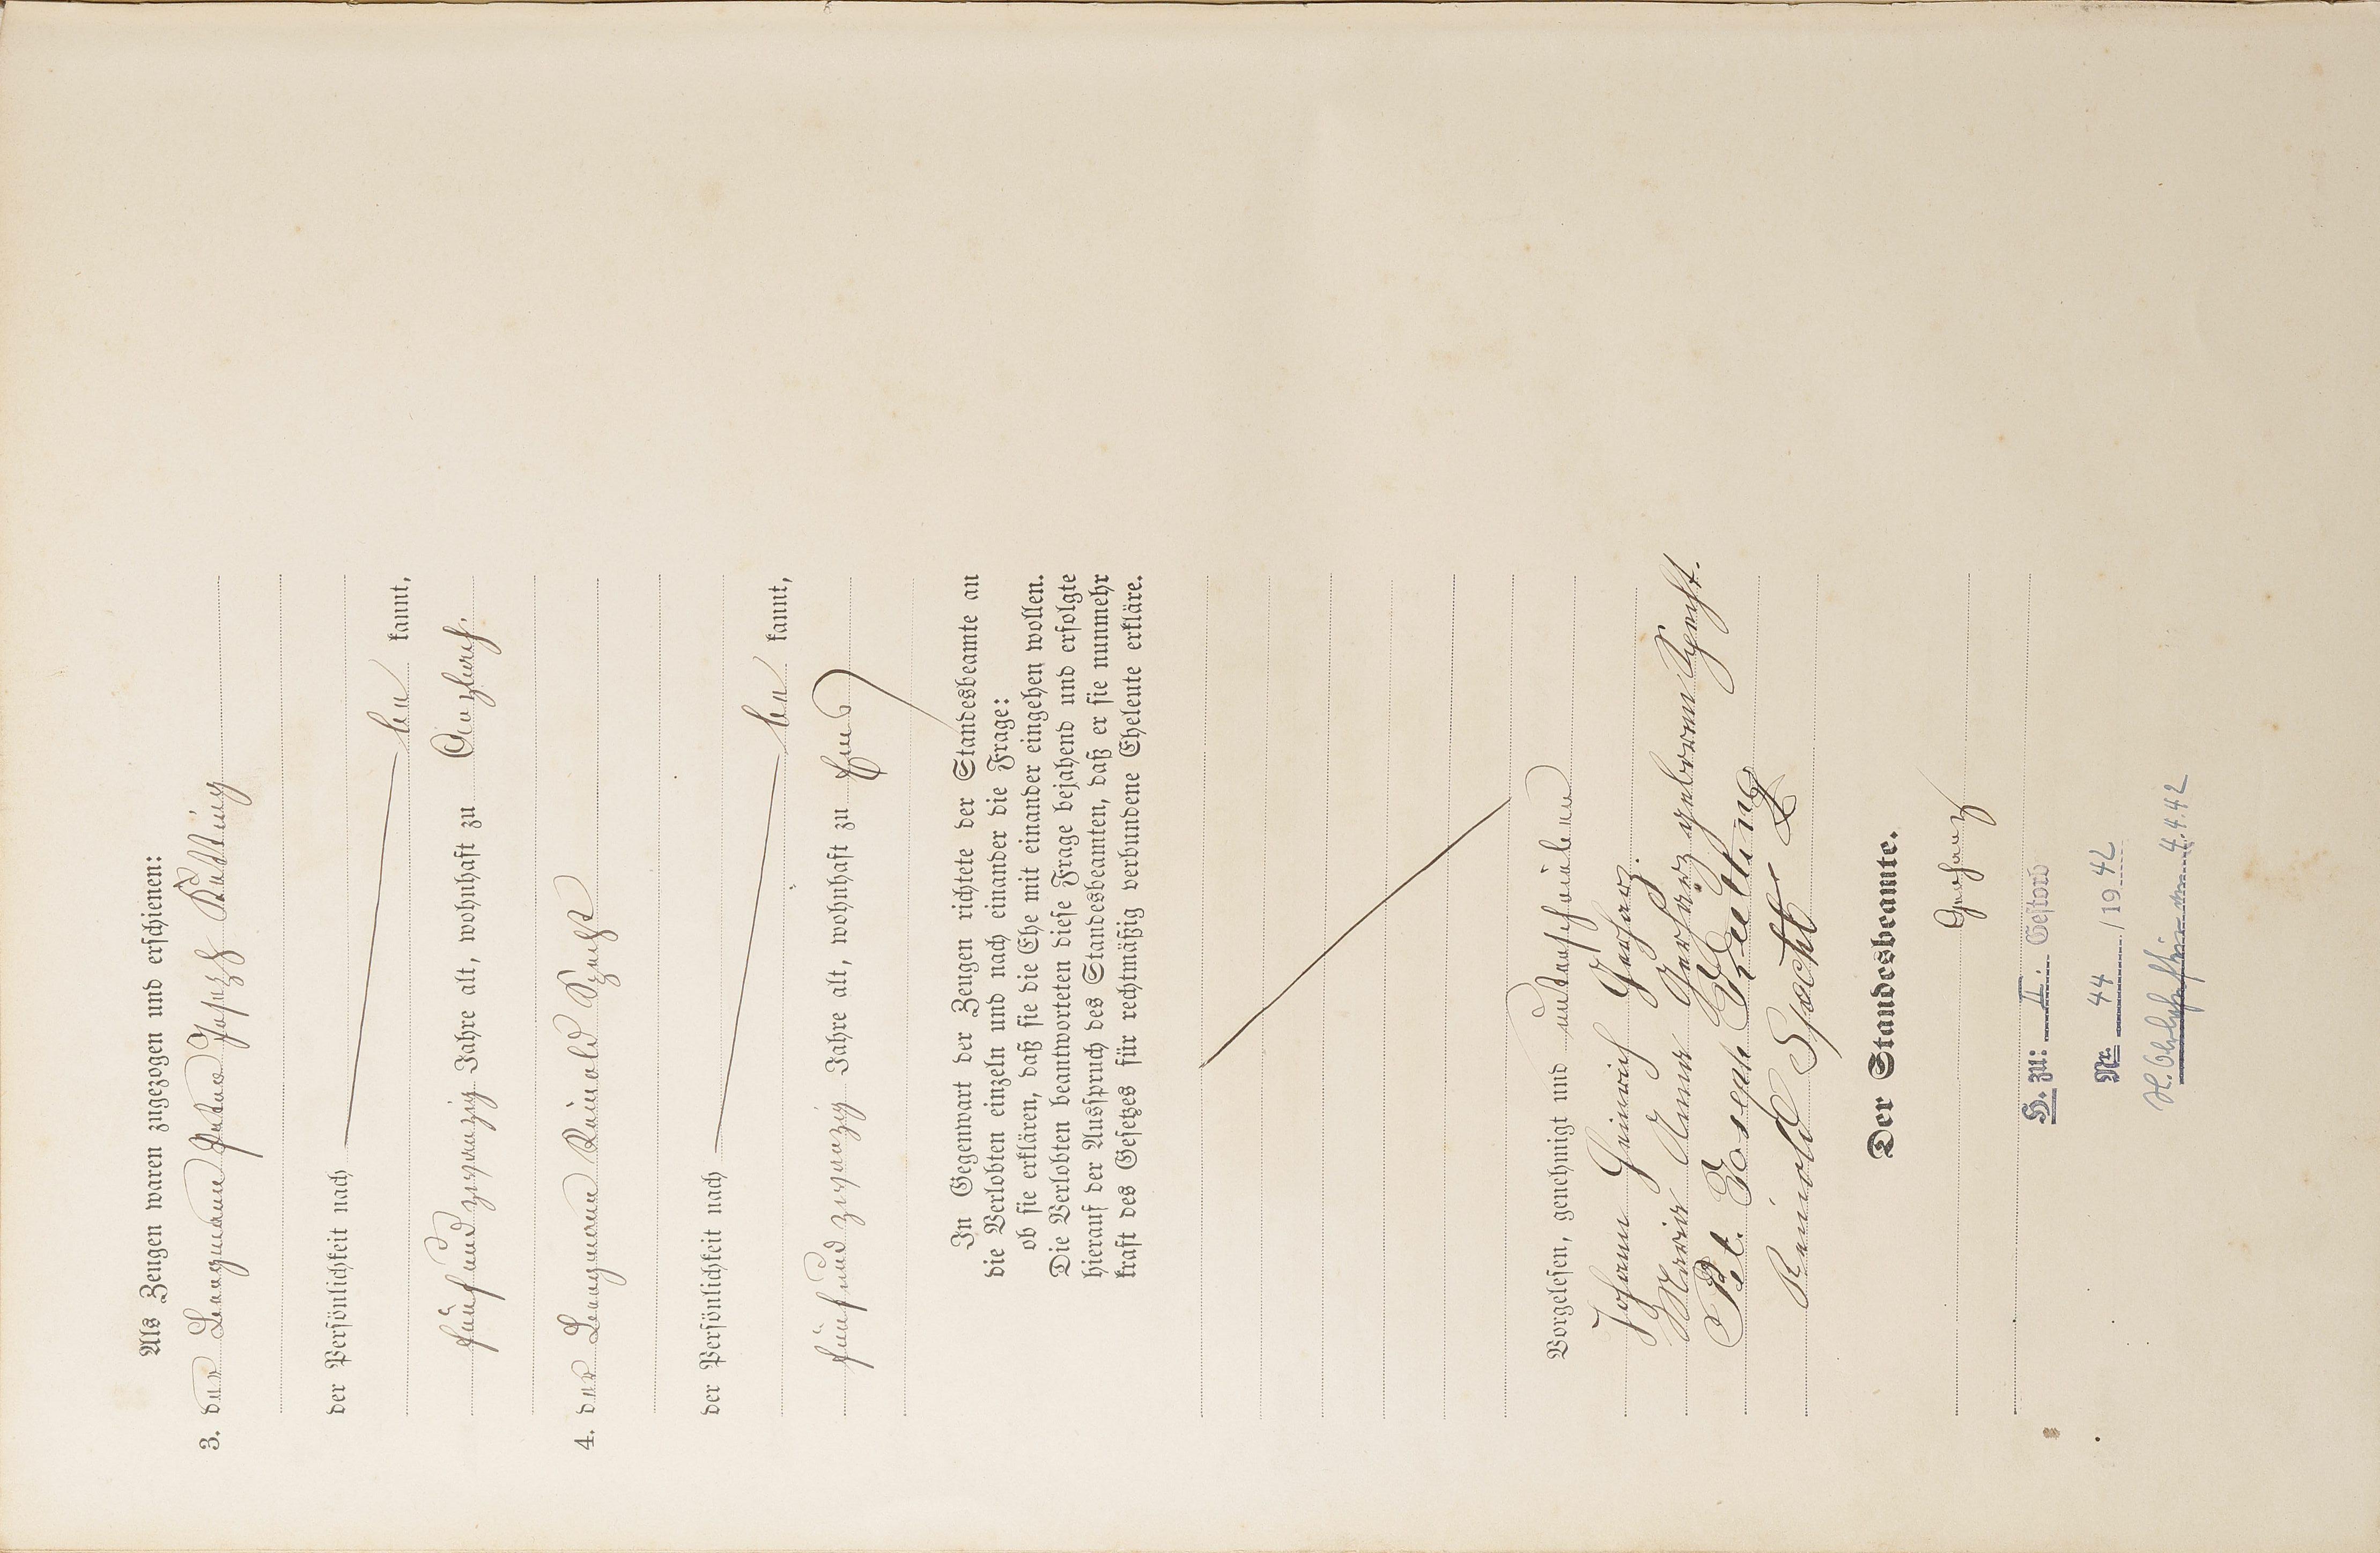 Als Zeugen waren zugezogen und erschienen:
3. der Bergmann Peter Josef Ketting
der Persönlichkeit nach
be kannt,
fünfundzwanzig Jahre alt, wohnhaft zu
4. der Bergmann Reinold Specht
der Persönlichkeit nach
be kannt,
fünfundzwanzig Jahre alt, wohnhaft zu Ems
In Gegenwart der Zeugen richtete der Standesbeamte an
die Verlobten einzeln und nach einander die Frage:
ob sie erklären, daß sie die Ehe mit einander eingehen wollen.
Die Verlobten beantworteten diese Frage bejahend und erfolgte
hierauf der Ausspruch des Standesbeamten, daß er sie nunmehr
kraft des Gesetzes für rechtmäßig verbundene Eheleute erkläre.
Vorgelesen, genehmigt und unterschrieben
Johann Heinrich
Maria Anna geborene Specht.
Pet. Joseph
Reinold Specht
Der Standesbeamte.
H. zu: II. Gestorb
Nr. 44 / 19 42
4.4.42